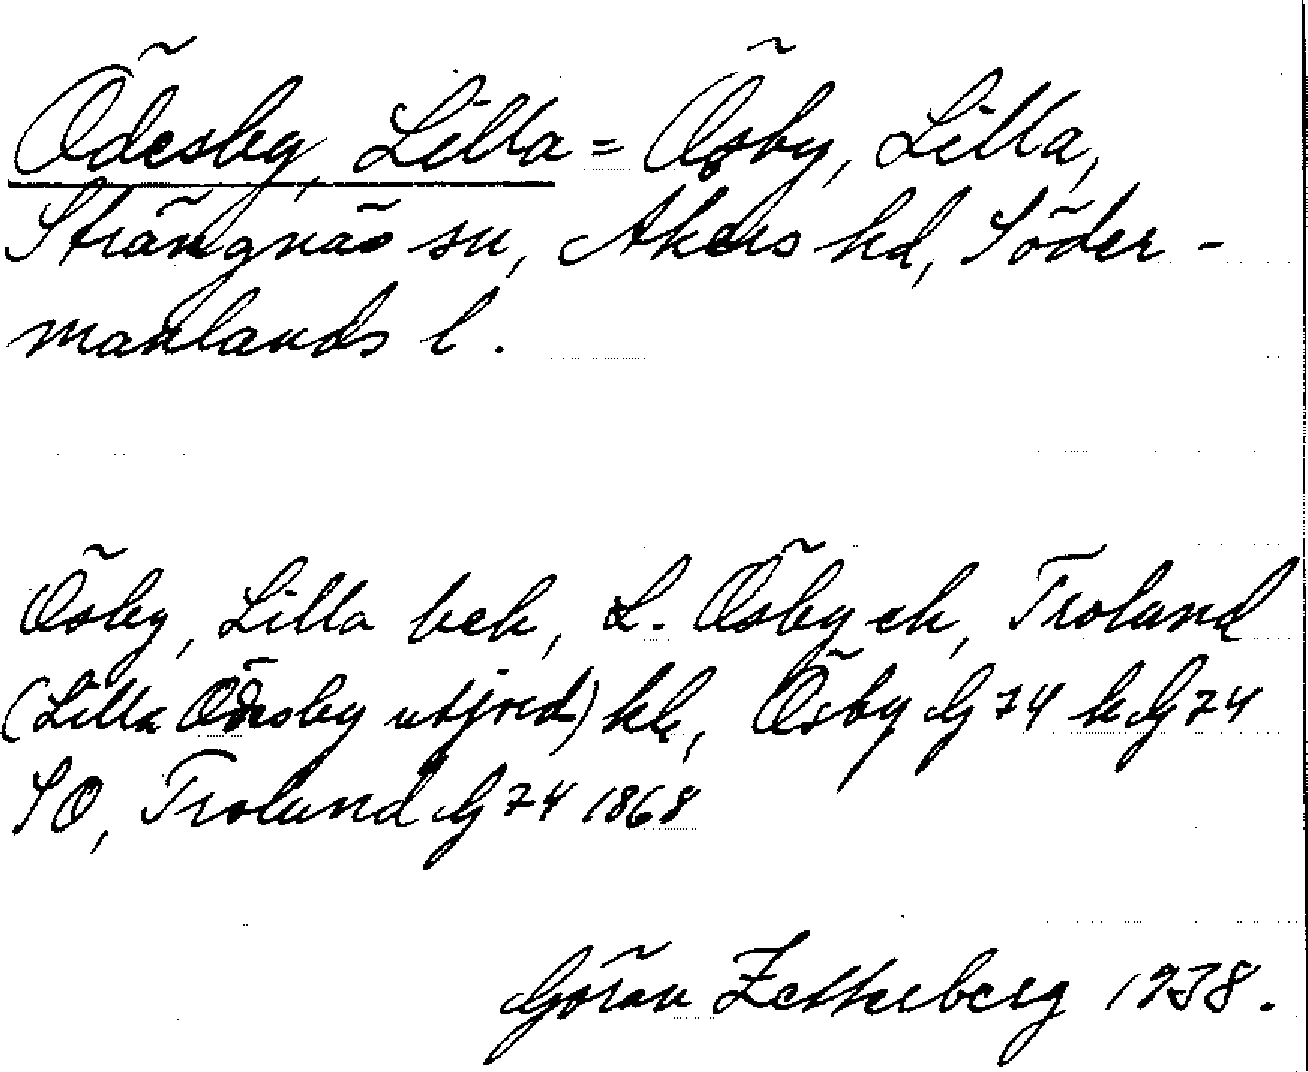 Ödesby, Lilla = Ösby, Lilla,
Strängnäs sn, Åkers hd, Söder-
manlands l.
Ösby, Lilla bek, L. Ösby ek, Troland
(Lilla Ödesby utjord) kk, Ösby G 74 k G 74
SO, Troland G 74 1868
Göran Zetterberg 1938.